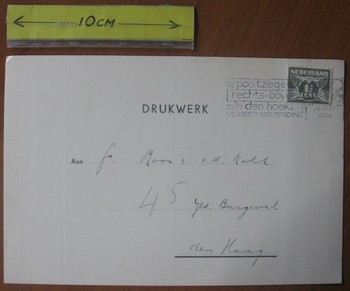 10CM
postzege
rechts-bov
in den hoek!
VLUGGER VERZENDING
NEDERLAND
1½
CENT
DRUKWERK
Aan Fa. Roos & v.d. Kolk
45 Ged. Burgwal
den Haag